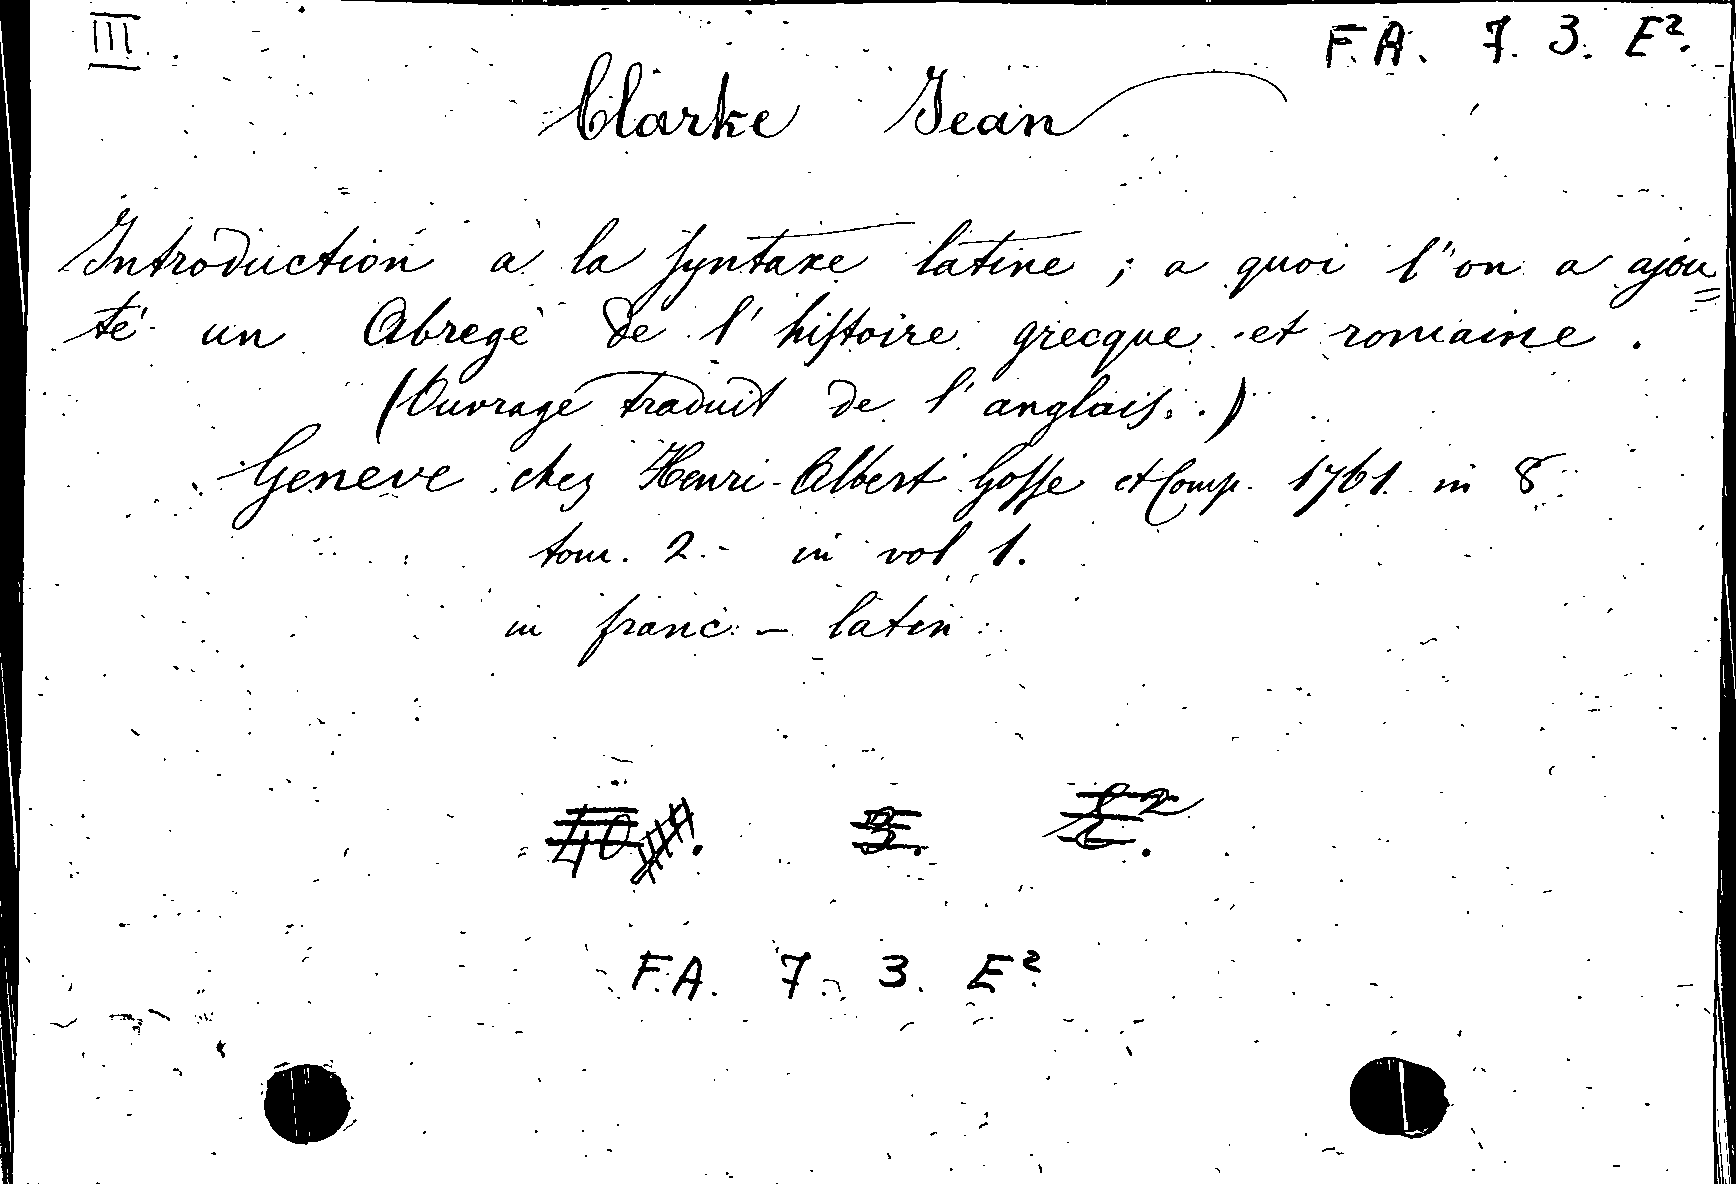 III
F.A. 7. 3. E².
Clarke Jean
Introduction a la syntaxe latine ; a quoi l'on a ajou=
té un Abregé de l'histoire grecque et romaine.
(Ouvrage traduit de l'anglais.)
Geneve chez Henri-Albert Gosse et Comp. 1761 in 8
tom. 2. - in vol 1.
in franc. - latin
40 3. E².
F.A. 7. 3. E²